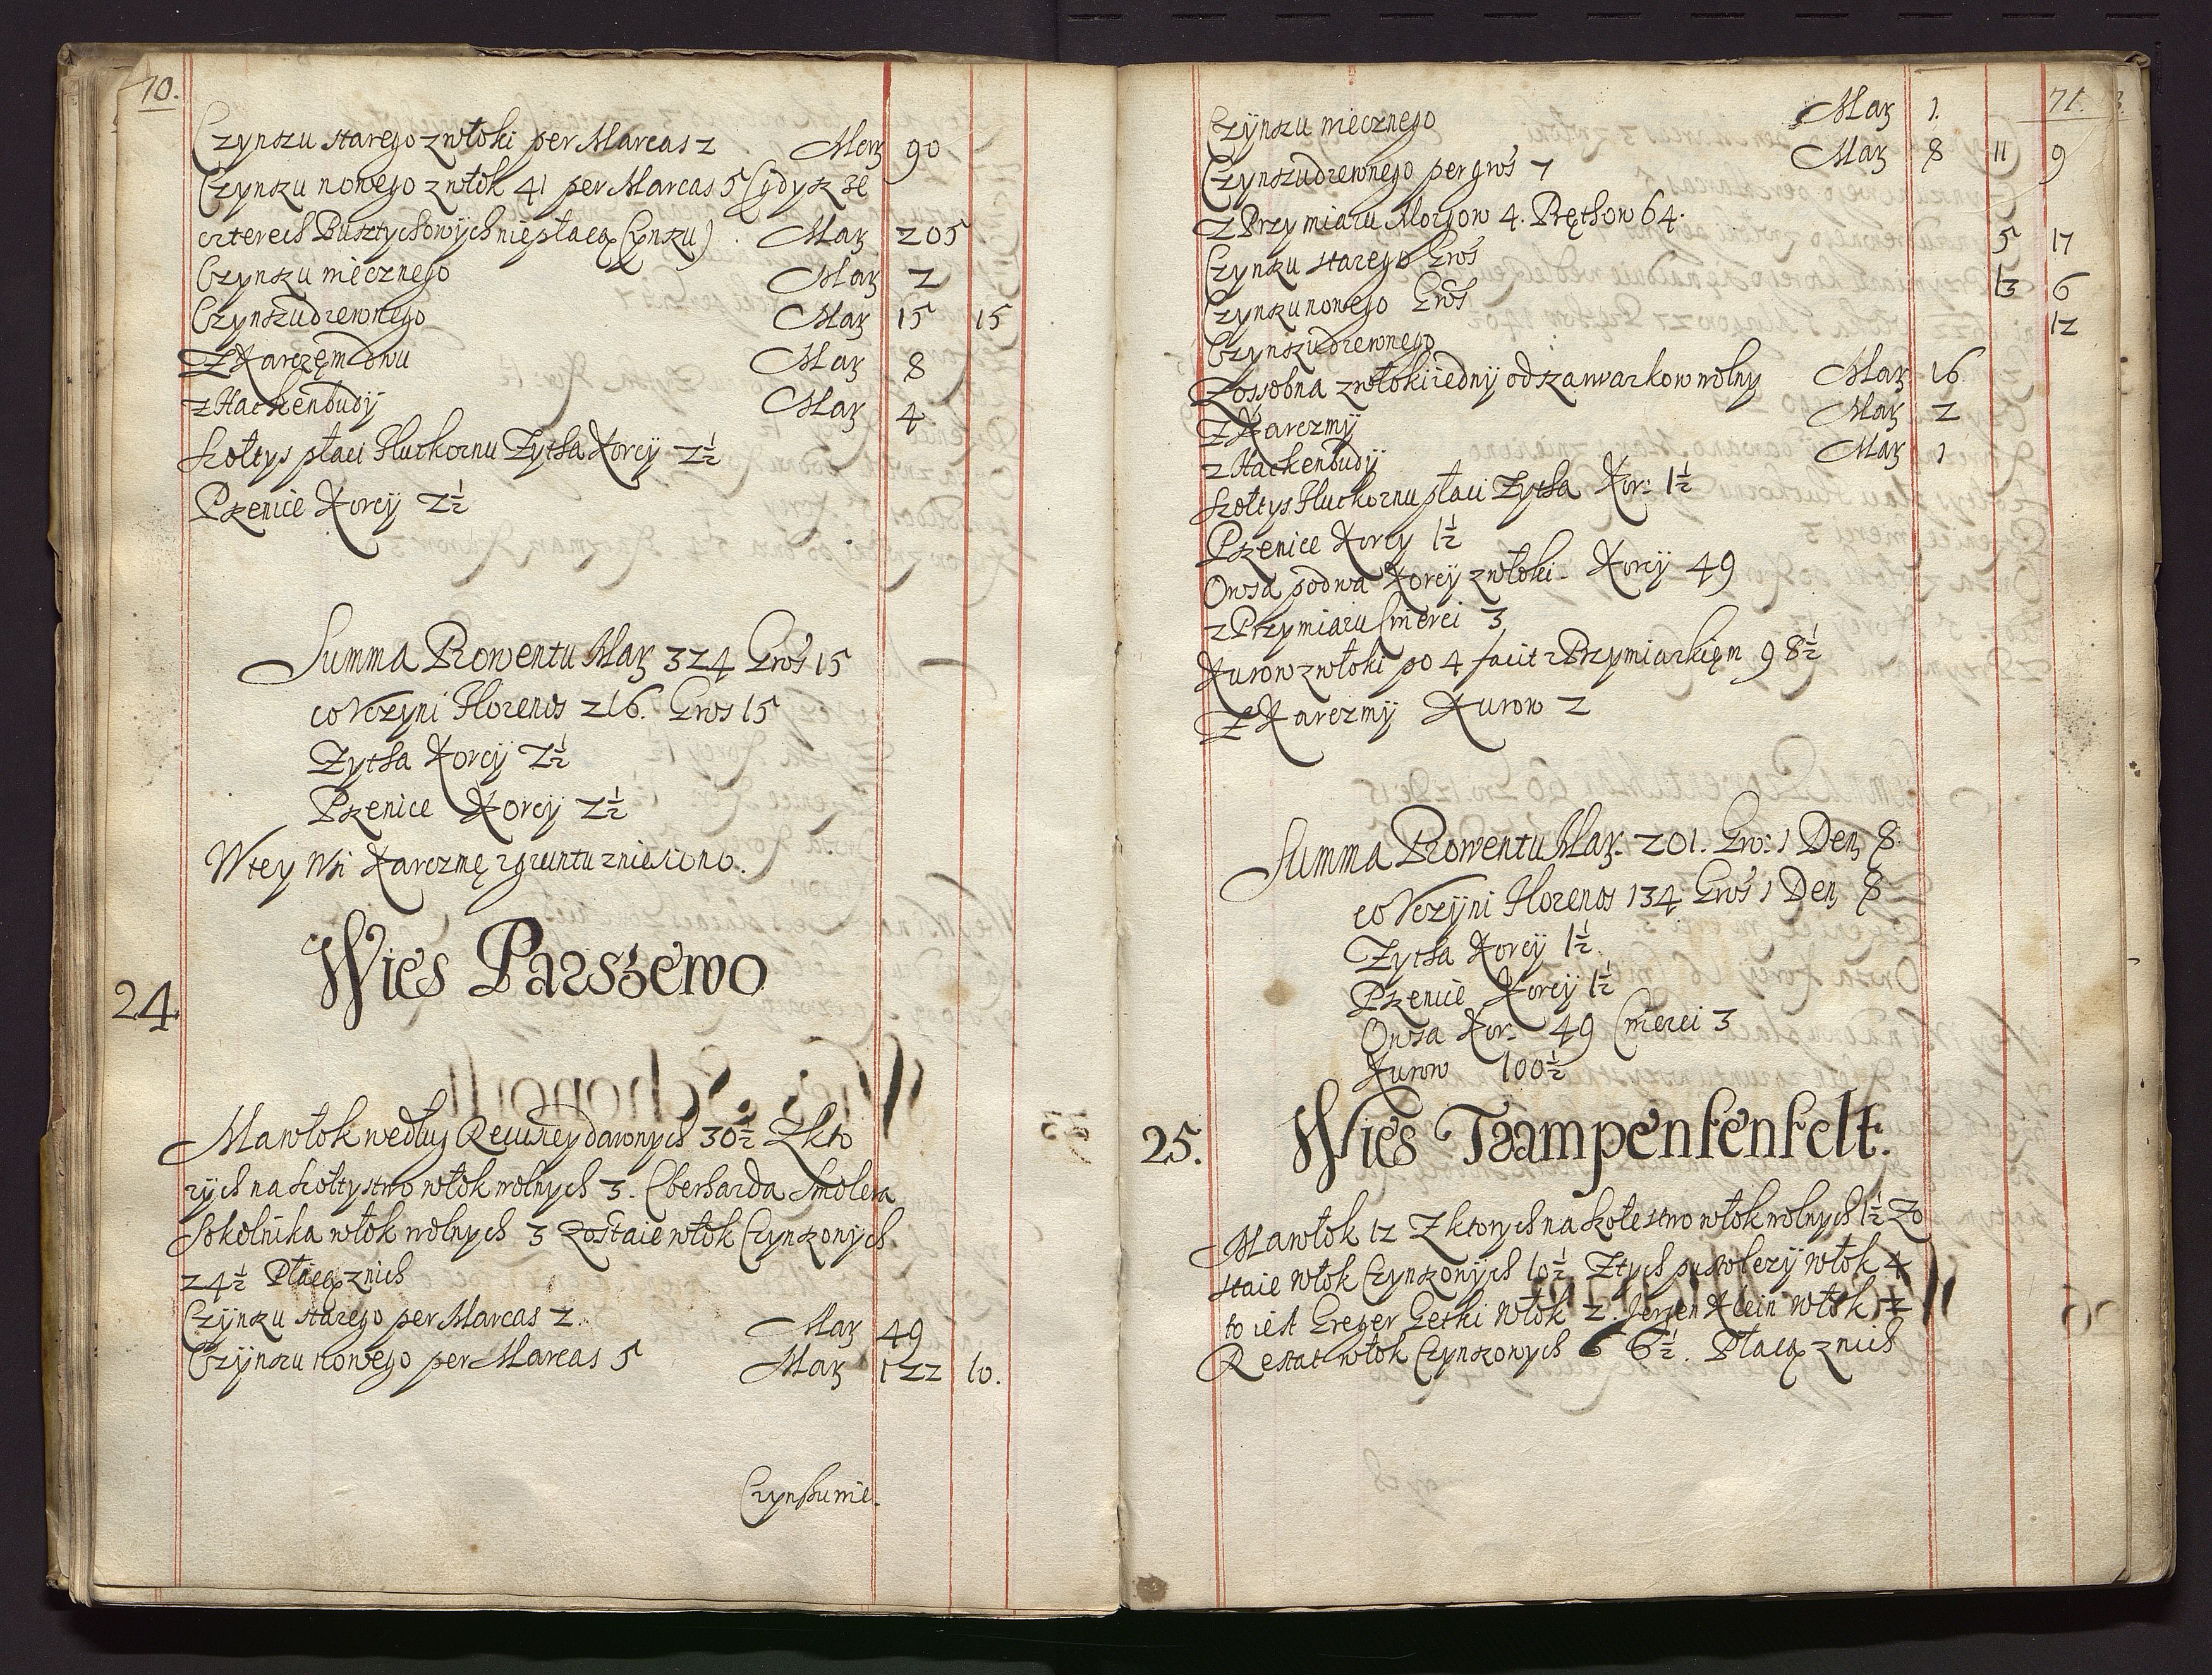 70.
Czynszu starego z włoki per Marcas 2 Marz 90
Czynszu nowego z włok 41 per Marcas 5 (gdysz ze
czterech Pustychowych nie płacą Cynszu) Marz 205
Czynszu miecznego Marz 2
Czynszu drewnego Marz 15 15
Z Karczęm dwu Marz 8
z Hackenbudÿ Marz 4.
Szołtys płaci Plutkornu Zytha Korcÿ 2½
Pszenice Korcÿ 2½
Summa Prowentu Marz 324 Gros 15
co Vczyni Florenos 216. Gros 15
Zytha Korcÿ 2½
Pszenice Korcÿ 2½
W tey Wsi Karczmę z gruntu zniesiono.
24.
Wies Parszewo
Ma włok według Rewizey dawnych 30½ Z kto
rych na szołtystwo włok wolnych 3. Eberharda Smolera
Sokolnika włok wolnych 3 Zostaie włok Czynszonych
24½ Płacą z nich
Czÿnszu starego per Marcas 2. Marz 49
Czÿnszu nowego per Marcas 5 Marz 122 10.
Czynszu mie-
71.
Czÿnszu miecznego Marz 1.
Czynszu drewnego per gros 7 Marz 8 11 9
Z Przymiaru Morgow 4. Pręthow 64.
Czynszu starego Gros 5 17
Czynszu nowego Gros 13 6
Czynszu drewnego 12
Z ossobna z włoki iednÿ od szarwarkow wolny Marz 16
Z Karczmÿ Marz 2
z Hackenbudÿ Marz 1
Szołtys Plutkornu płaci Zytha Kor: 1½
Pszenice Korcy 1½
Owsa po dwa Korcÿ z włoki. Korcÿ 49
z Przymiaru Cwierci 3
Kurow z włoki po 4 facit z Przymiarkięm 98½
Z Karczmÿ Kurow 2
Summa Prowentu Marz. 201. Gro: 1 Den 8.
co Vczÿni Florenos 134 Gros 1 Den 8
Zytha Korcÿ 1½.
Pszenice Korcÿ 1½
Owsa Kor: 49 Cwierci 3
Kurow 100½
25.
Wies Trampenfenfelt.
Ma włok 12 Z ktorych na szołestwo włok wolnych 1½ Zo
staie włok Czynszonÿch 10½ Z tych pusto lezÿ włok 4
to iest Greger Getki włok 2. Jerzen Klein włok 2
Restat włok Czynszonych 6½. Płacą z nich